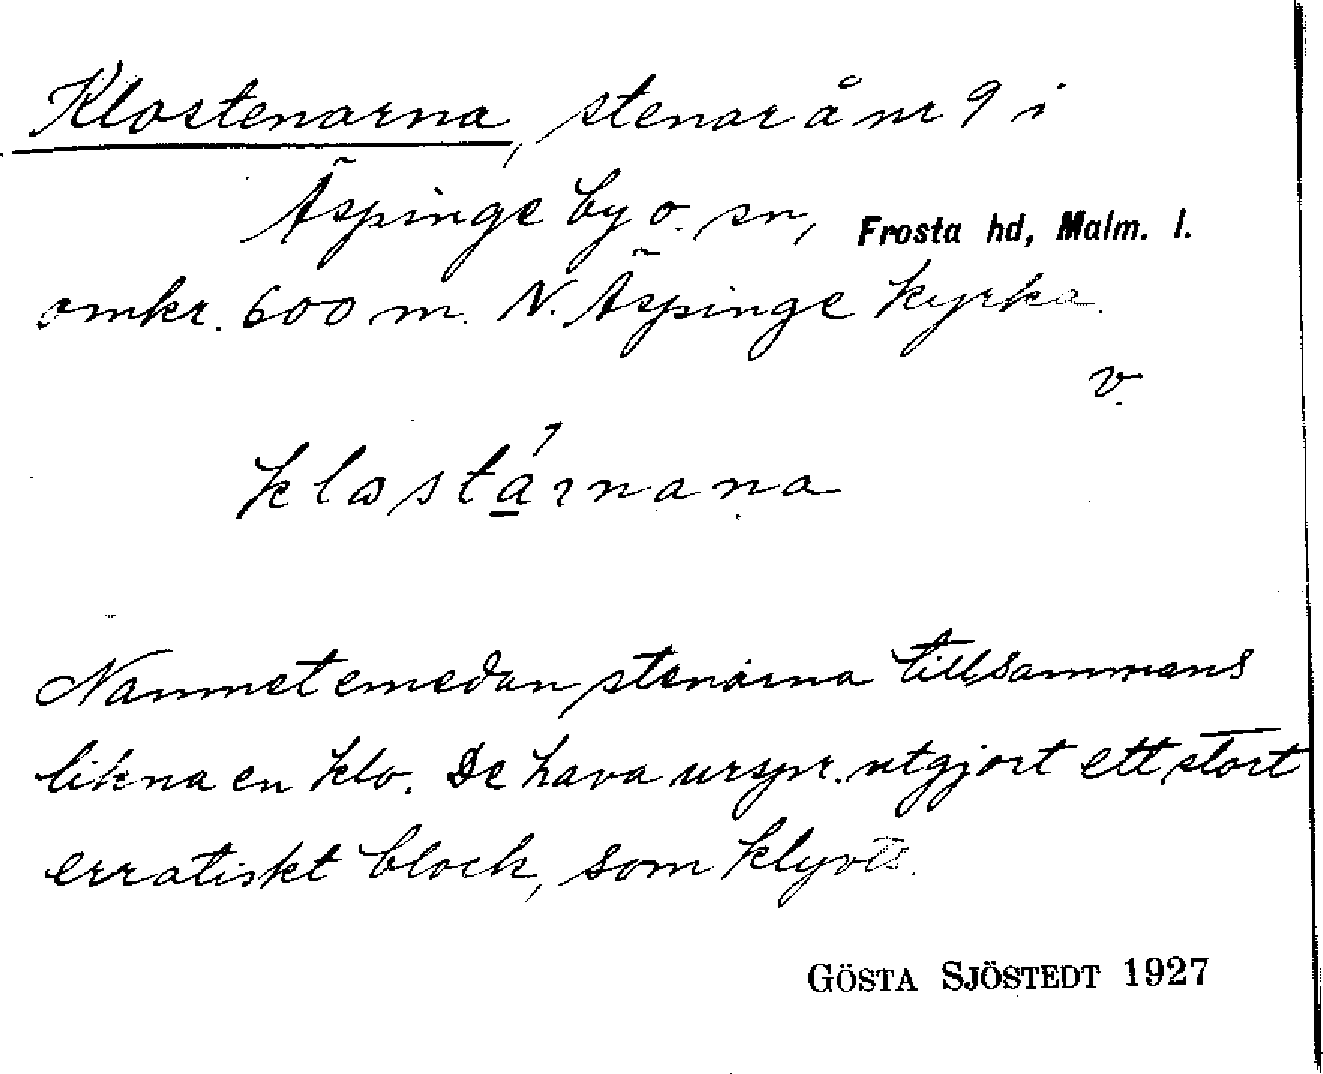 Klostenarna, stenar å nr 9 i
Äspinge by o. sn, Frosta hd, Malm. l.
omkr. 600 m. N. Äspinge kyrka.
v.
Namnet emedan stenarna tillsammans
likna en klo. De hava urspr. utgjort ett stort
erratiskt block, som kluvits.
GÖSTA SJÖSTEDT 1927